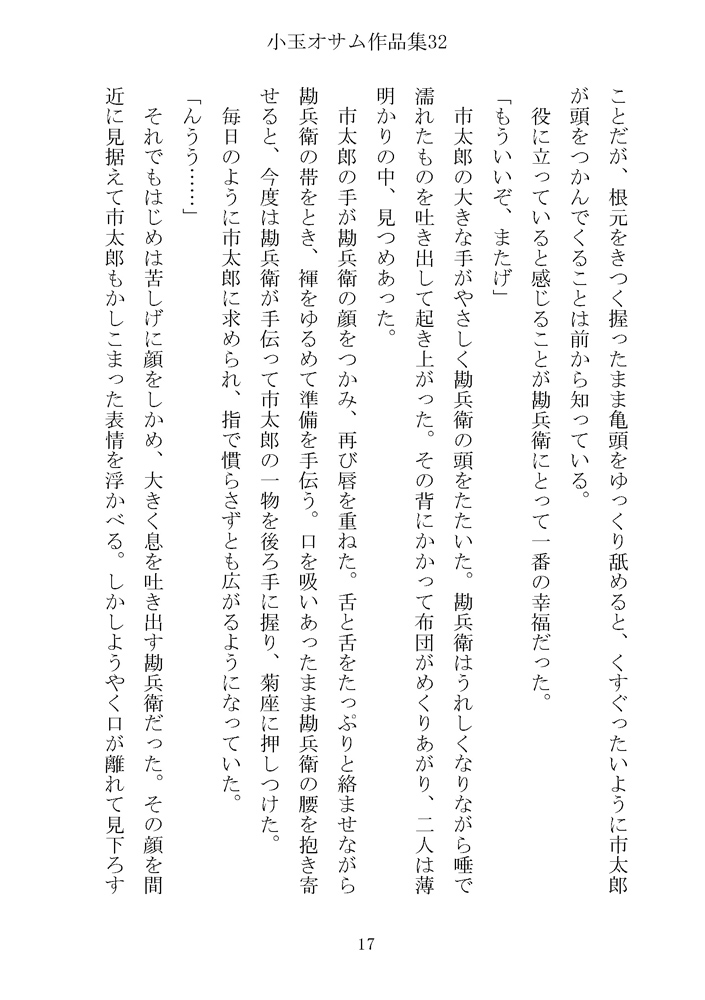 小玉オサム作品集32
ことだが、根元をきつく握ったまま亀頭をゆっくり舐めると、くすぐったいように市太郎
が頭をつかんでくることは前から知っている。
役に立っていると感じることが勘兵衛にとって一番の幸福だった。
「もういいぞ、またげ」
市太郎の大きな手がやさしく勘兵衛の頭をたたいた。勘兵衛はうれしくなりながら唾で
濡れたものを吐き出して起き上がった。その背にかかって布団がめくりあがり、二人は薄
明かりの中、見つめあった。
市太郎の手が勘兵衛の顔をつかみ、再び唇を重ねた。舌と舌をたっぷりと絡ませながら
勘兵衛の帯をとき、褌をゆるめて準備を手伝う。口を吸いあったまま勘兵衛の腰を抱き寄
せると、今度は勘兵衛が手伝って市太郎の一物を後ろ手に握り、菊座に押しつけた。
毎日のように市太郎に求められ、指で慣らさずとも広がるようになっていた。
「んうう……」
それでもはじめは苦しげに顔をしかめ、大きく息を吐き出す勘兵衛だった。その顔を間
近に見据えて市太郎もかしこまった表情を浮かべる。しかしようやく口が離れて見下ろす
17